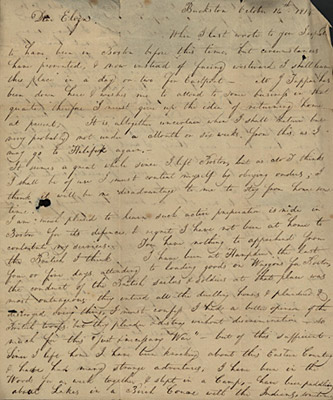 Buckston October 14th 1814
Dr. Eliza
When I last wrote to you I expected
to have been in Boston before this time, but circumstances
have prevented, & now instead of facing westward I shall leave
this place in a day or two for Eastport - Mr J Tappan has
been down here & wishes me to attend to some business in that
quarter therefore I must give up the idea of returning home
at present. It is altogether uncertain when I shall return but
very probably not under a Month or six weeks from this, as I
may go to Halifax again.
It seems a great while since I left Boston, but as do I think
I shall go if now I must content myself by obeying orders, I
think it will be no disadvantage to me to stay from home some
time.
I am much pleased to learn such active preparation is made in
Boston for its defence, & regret I have not been at home to
contribute my services. You have nothing to apprehend from
the British I think. I have been at Hampden the last
four or five days attending to loading goods on Waggons for Boston,
the conduct of the British sailors & soldiers at that place was
most outrageous they entered all the dwelling houses & plundered &
destroyed every thing, I must confess I had a better opinion of the
British troops, but they plunder destroy without discrimination - so
much for this War - but of this sufficient.
Since I left home I have been knocking about this Eastern Country
& have had many strange adventures, I have been in the
Woods for a week together, & slept in a Camp, have been paddled
about Lakes in a Birch Canoe with the Indians,